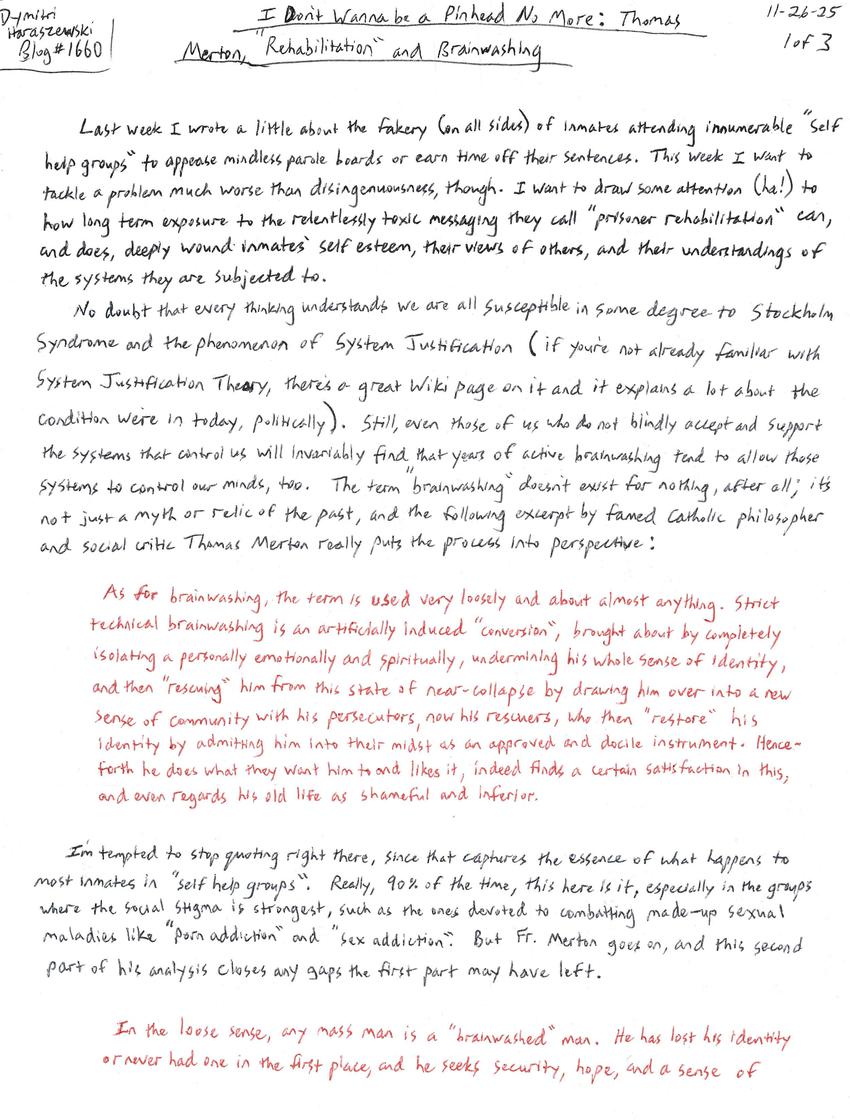 Dymitri
Haraszewski
Blog #1660
I Don't Wanna be a Pinhead No More: Thomas
Merton, "Rehabilitation" and Brainwashing
11-26-25
1 of 3
Last week I wrote a little about the fakery (on all sides) of inmates attending innumerable "self
help groups" to appease mindless parole boards or earn time off their sentences. This week I want to
tackle a problem much worse than disingenuousness, though. I want to draw some attention (ha!) to
how long term exposure to the relentlessly toxic messaging they call "prisoner rehabilitation" can,
and does, deeply wound inmates' self esteem, their views of others, and their understandings of
the systems they are subjected to.
No doubt that every thinking understands we are all susceptible in some degree to Stockholm
Syndrome and the phenomenon of System Justification (if you're not already familiar with
System Justification Theory, there's a great Wiki page on it and it explains a lot about the
condition we're in today, politically). Still, even those of us who do not blindly accept and support
the systems that control us will invariably find that years of active brainwashing tend to allow those
systems to control our minds, too. The term "brainwashing" doesn't exist for nothing, after all; it's
not just a myth or relic of the past, and the following excerpt by famed Catholic philosopher
and social critic Thomas Merton really puts the process into perspective:
As for brainwashing, the term is used very loosely and about almost anything. Strict
technical brainwashing is an artificially induced "conversion", brought about by completely
isolating a personally emotionally and spiritually, undermining his whole sense of identity,
and then "rescuing" him from this state of near-collapse by drawing him over into a new
sense of community with his persecutors, now his rescuers, who then "restore" his
identity by admitting him into their midst as an approved and docile instrument. Hence-
forth he does what they want him to and likes it, indeed finds a certain satisfaction in this,
and even regards his old life as shameful and inferior.
I'm tempted to stop quoting right there, since that captures the essence of what happens to
most inmates in "self help groups". Really, 90% of the time, this here is it, especially in the groups
where the social stigma is strongest, such as the ones devoted to combatting made-up sexual
maladies like "porn addiction" and "sex addiction". But Fr. Merton goes on, and this second
part of his analysis closes any gaps the first part may have left.
In the loose sense, any mass man is a "brainwashed" man. He has lost his identity
or never had one in the first place, and he seeks security, hope, and a sense of